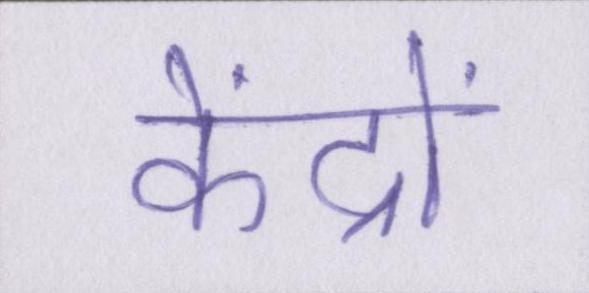 केंद्रों